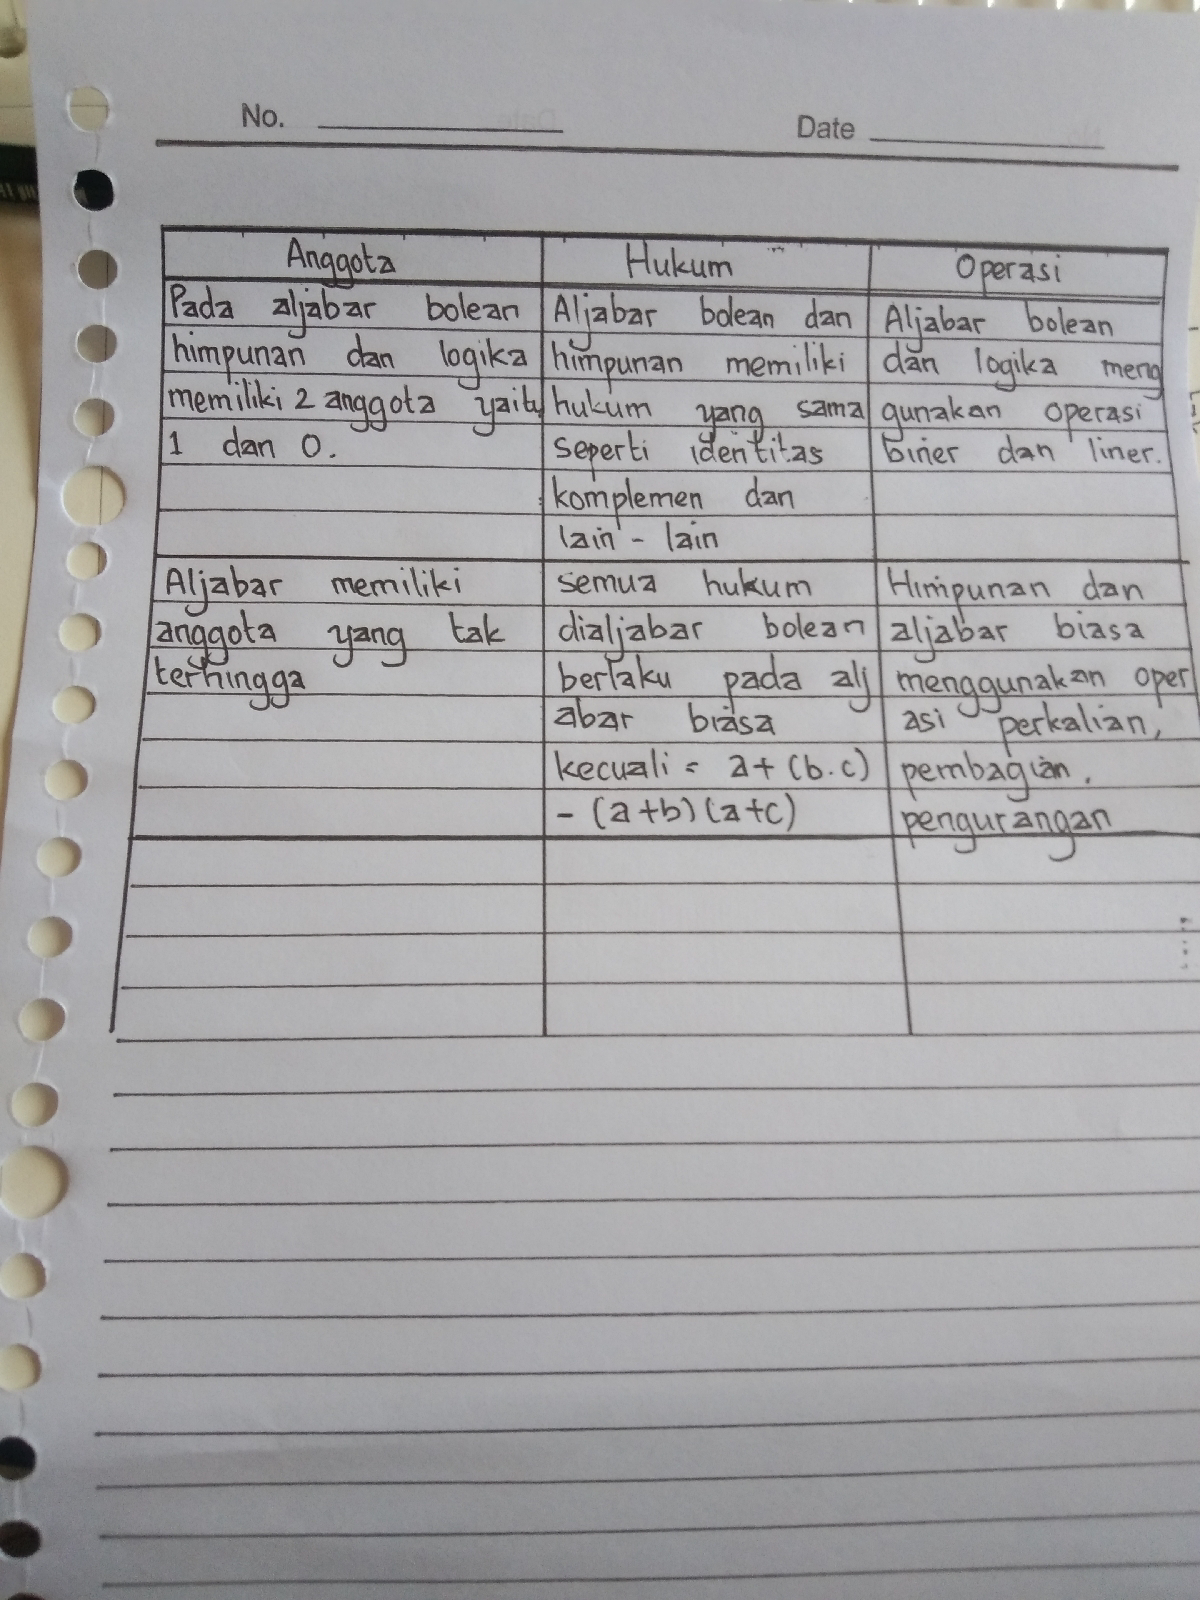 No.
Date
Anggota
Pada aljabar bolean
himpunan dan logika
memiliki 2 anggota yaitu
1 dan 0.
Hukum
Aljabar bolean dan
himpunan memiliki
hukum yang sama
seperti identitas
komplemen dan
lain - lain
Operasi
Aljabar bolean
dan logika meng
gunakan operasi
biner dan liner.
Aljabar memiliki
anggota yang tak
terhingga
semua hukum
dialjabar bolean
berlaku pada alj
abar biasa
kecuali = a+ (b.c)
- (a+b) (a+c)
Himpunan dan
aljabar biasa
menggunakan oper
asi perkalian,
pembagian,
pengurangan